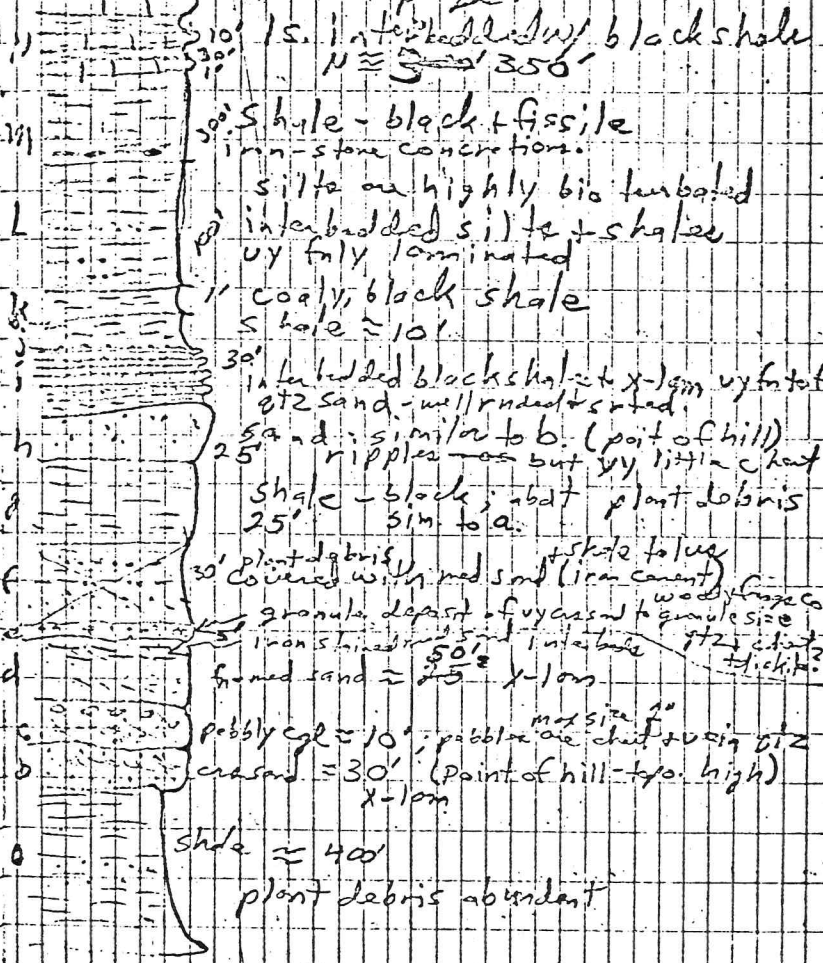 n 10' ls. interbedded w/ black shale
30' N ≈ 350'
1'
m 300' shale - black + fissile
iron-stone concretions.
silts are highly bioturbated
L interbedded silts + shales
vy fnly laminated
k 1' coaly, black shale
shale ≈ 10'
30'
i interbedded black shale + x-lam vy fn to f
qtz sand - well rnded + srted.
h sand : similar to b. (poit of hill)
25' ripples but vy little chert
g shale - black ; abdt plant debris
25' sim. to a.
plant debris + shale talus
f 30' covered with med sand (iron cement)
woody frags
e 5' granule deposit of vy crs sand to granule size
iron stained sand interbeds qtz, chert?
50'
d fn-med sand ≈ x-lam
max size 2"
c pebbly cgl ≈ 10' ; pebbles are chert + vein qtz
b crs sand = 30' (point of hill - topo. high)
x-lam
a shale ≈ 400'
plant debris abundant